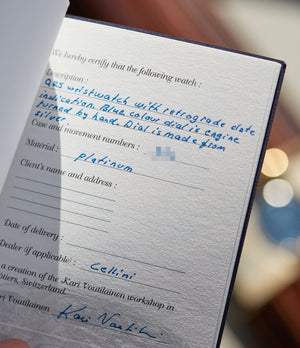 We hereby certify that the following watch :
Description :
QRS wristwatch with retrograde date
indication. Blue colour dial is engine
turned by hand. Dial is made from
silver.
Case and movement numbers :
Material :
platinum
Client's name and address :
Date of delivery :
Dealer (if applicable) :
Cellini
a creation of the Kari Voutilainen workshop in
tiers, Switzerland.
ri Voutilainen
Kari Voutilainen